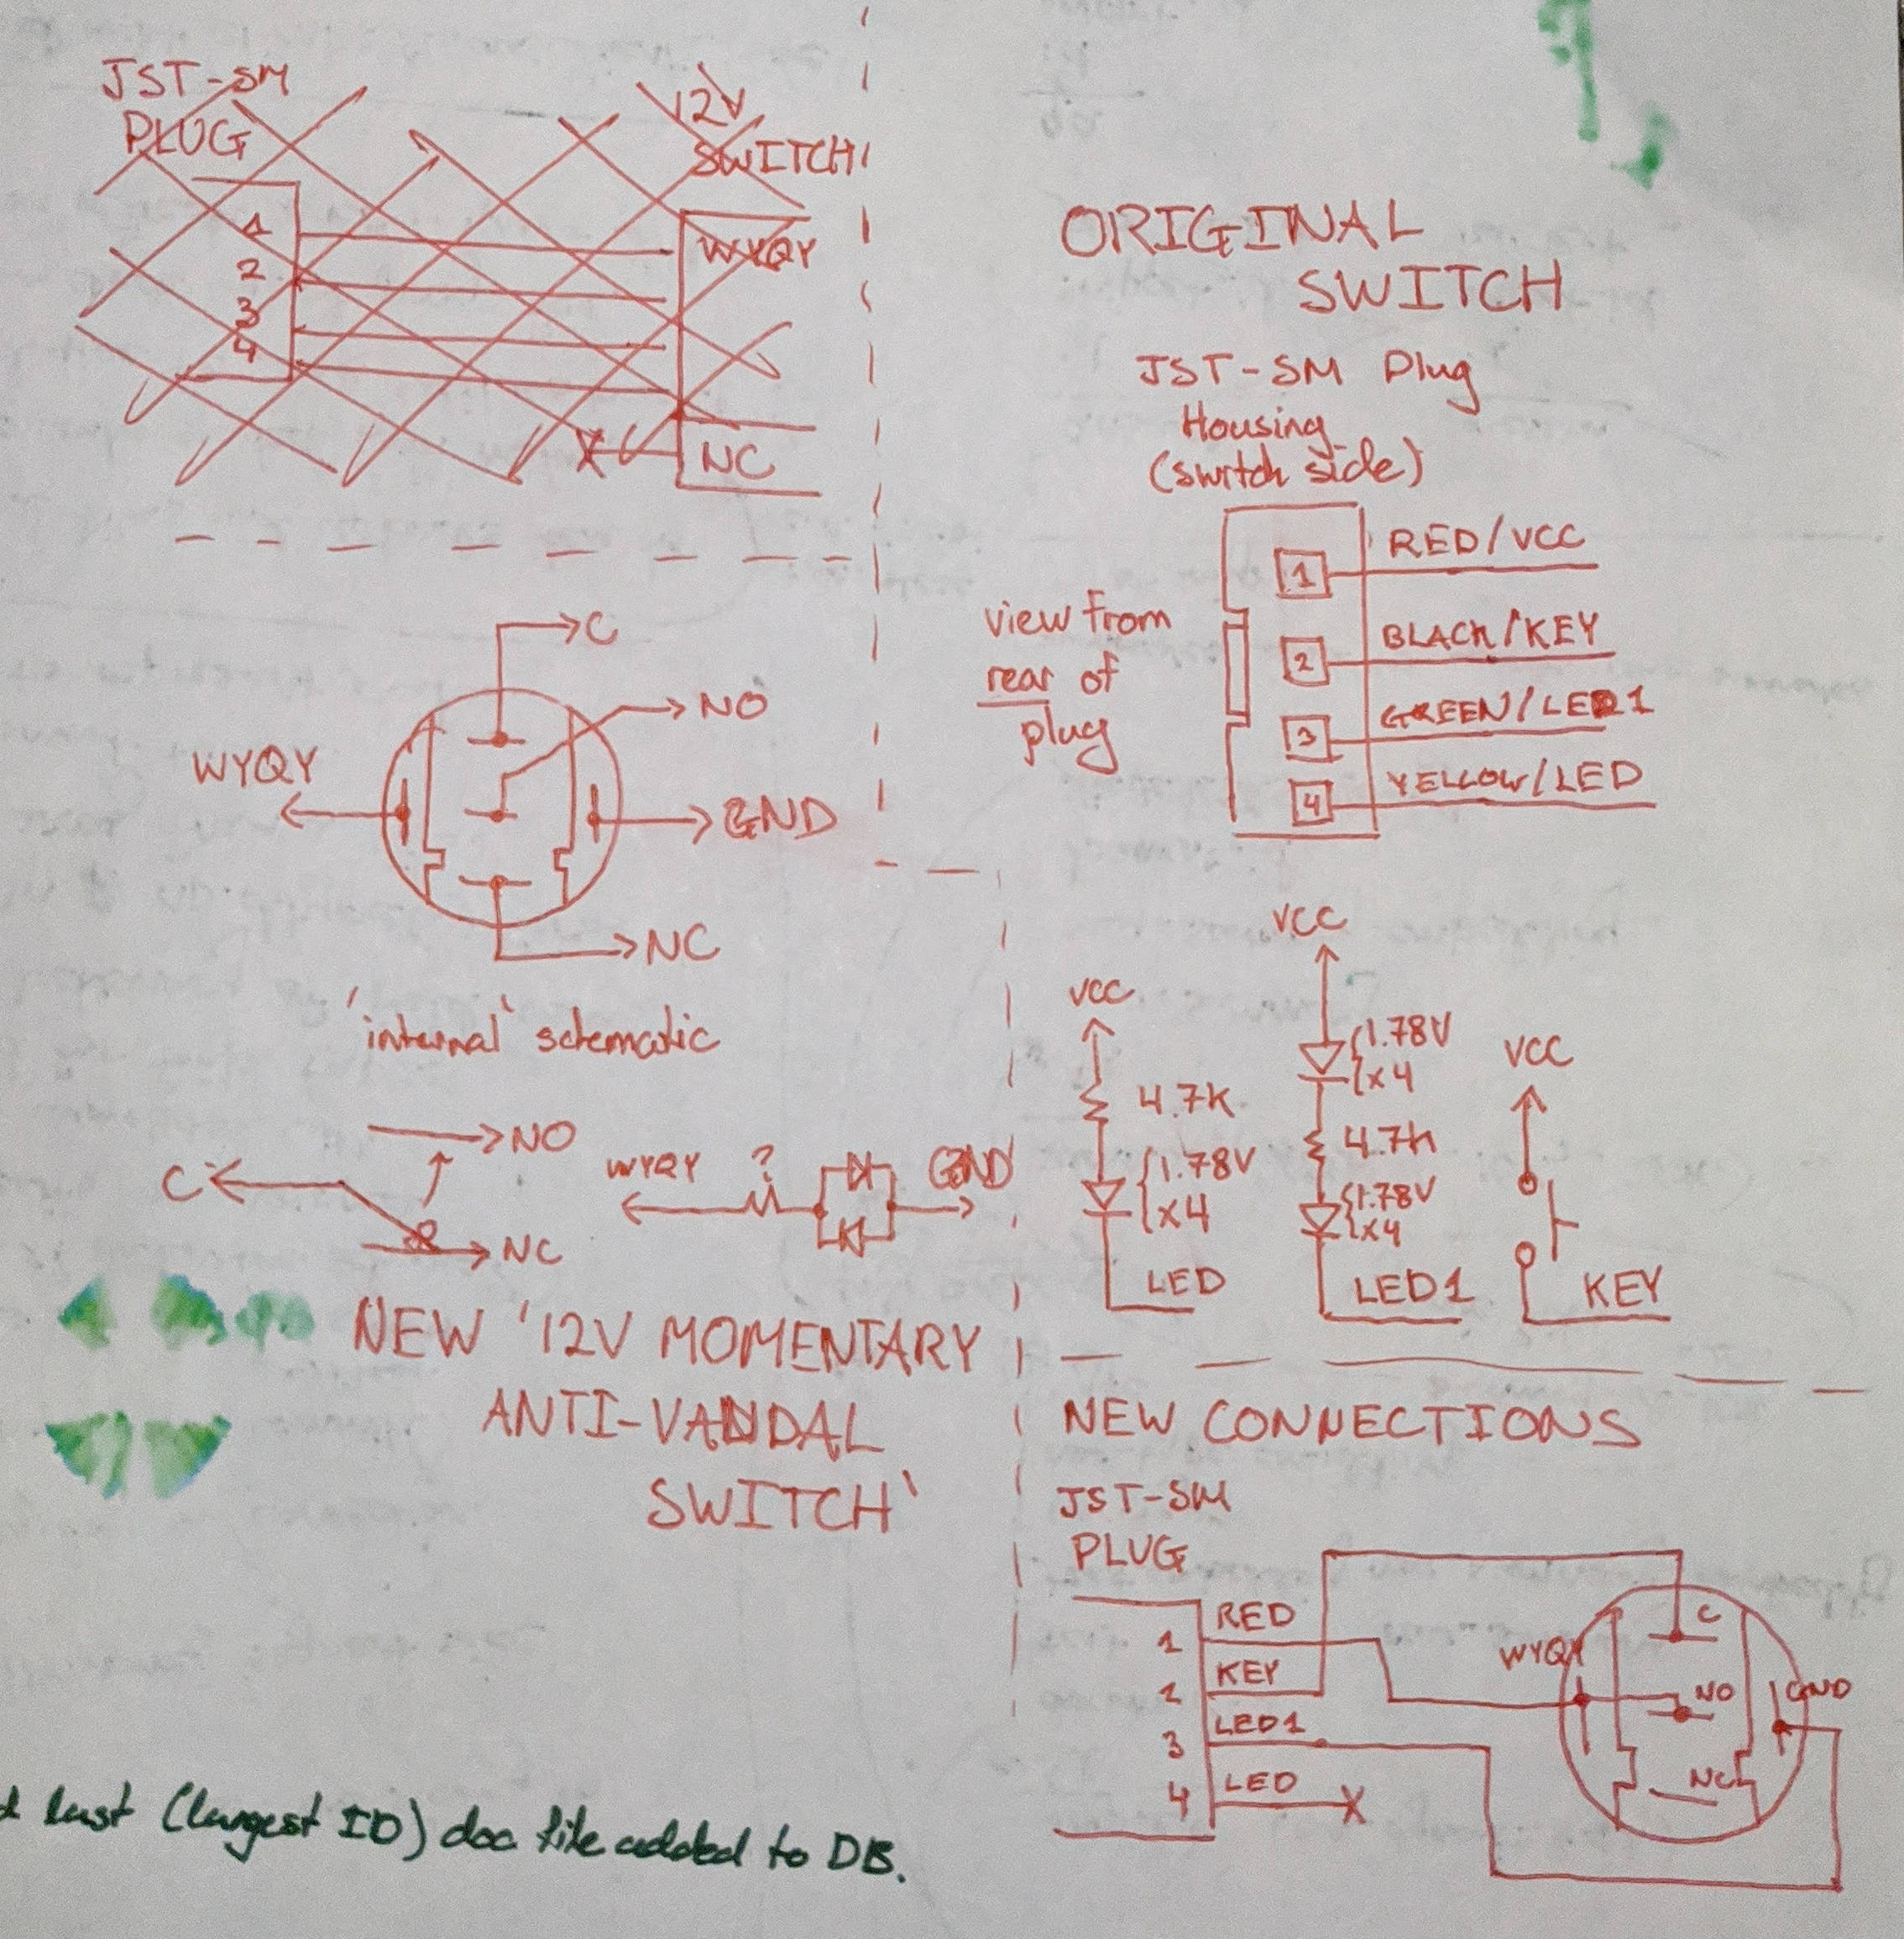 JST-SM
PLUG
12V
SWITCH
1
2
3
4
WYQY
X
NC
C
NO
WYQY
GND
NC
'internal' schematic
NO
C
NC
WYQY
?
GND
NEW '12V MOMENTARY
ANTI-VANDAL
SWITCH'
last (largest ID) doc file added to DB.
ORIGINAL
SWITCH
JST-SM Plug
Housing
(switch side)
view from
rear of
plug
1 RED/VCC
2 BLACK/KEY
3 GREEN/LED1
4 YELLOW/LED
VCC
4.7K
1.78V
x4
LED
VCC
1.78V
x4
4.7K
1.78V
x4
LED1
VCC
KEY
NEW CONNECTIONS
JST-SM
PLUG
1 RED
2 KEY
3 LED1
4 LED X
WYQY
C
NO
GND
NC